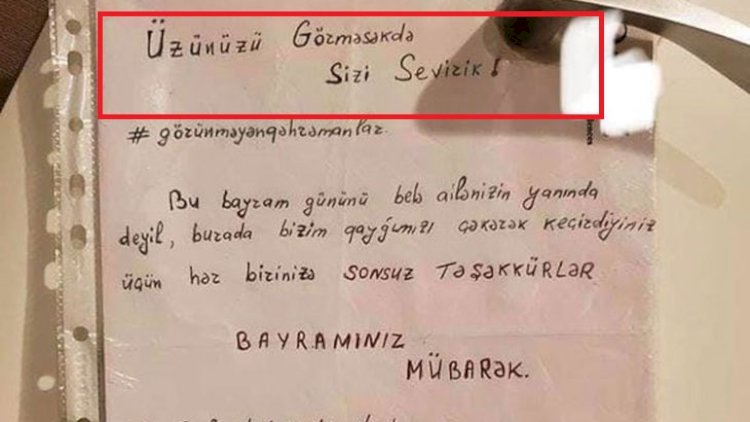 Üzünüzü Görməsəkdə
Sizi Sevirik!
#görünməyənqəhrəmanlar.
Bu bayram gününü belə ailənizin yanında
deyil, burada bizim qayğımızı çəkərək keçirdiyiniz
üçün hər birinizə SONSUZ TƏŞƏKKÜRLƏR
BAYRAMINIZ
MÜBARƏK.